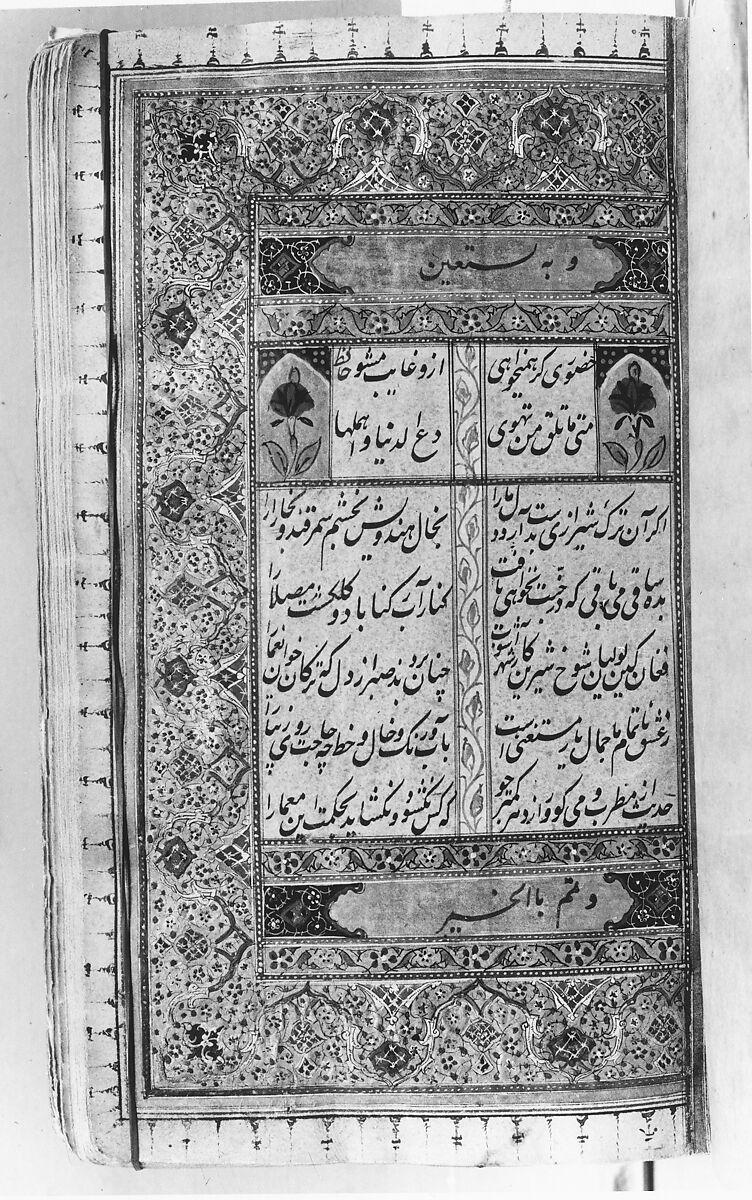 و به ستعین
حضوری گر همیخواهی ازو غایب مشو حافظ
متی ما تلق من تهوی دع الدنیا و اهملها
اگر آن ترک شیرازی بدست آرد دل مارا بخال هندویش بخشم سمرقند و بخارا را
بده ساقی می باقی که در جنت نخواهی یافت کنار آب رکناباد و گلگشت مصلا را
فغان کین لولیان شوخ شیرین کار شهر آشوب چنان بردند صبر از دل که ترکان خوان یغما را
ز عشق ناتمام ما جمال یار مستغنی است بآب و رنگ و خال و خط چه حاجت روی زیبا را
حدیث از مطرب و می گو و راز دهر کمتر جو که کس نگشود و نگشاید بحکمت این معما را
و تمم با الخیر